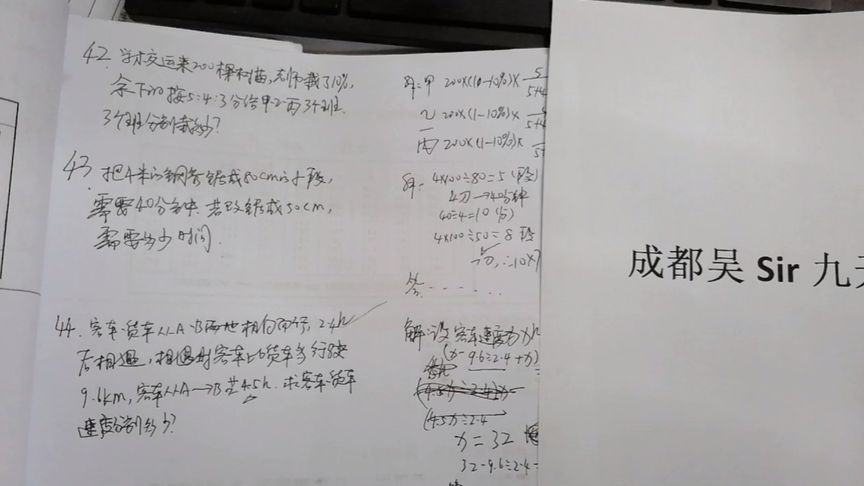 42. 学校运来200棵树苗,老师栽了10%,
余下的按5:4:3分给甲乙丙3个班.
3个班分别栽多少?
解:甲 200×(1-10%)×5/5+4
乙 200×(1-10%)×
丙 200×(1-10%)×
43 把4米的钢管锯成80cm的小段,
需要40分钟.若改锯成50cm,
需要多少时间.
解:
4×100÷80=5(段)
4刀→40分钟
40÷4=10(分)
4×100÷50=8段
7刀,∴10×7
答……
44. 客车、货车从A、B两地相向而行,2.4h
后相遇,相遇时客车比货车多行驶
9.6km,客车从A→B共4.5h.求客车、货车
速度分别多少?
解:设客车速度为x
(x-9.6÷2.4+x)
(4.5x÷2.4
x=32
32-9.6÷2.4=
答
成都吴 Sir 九